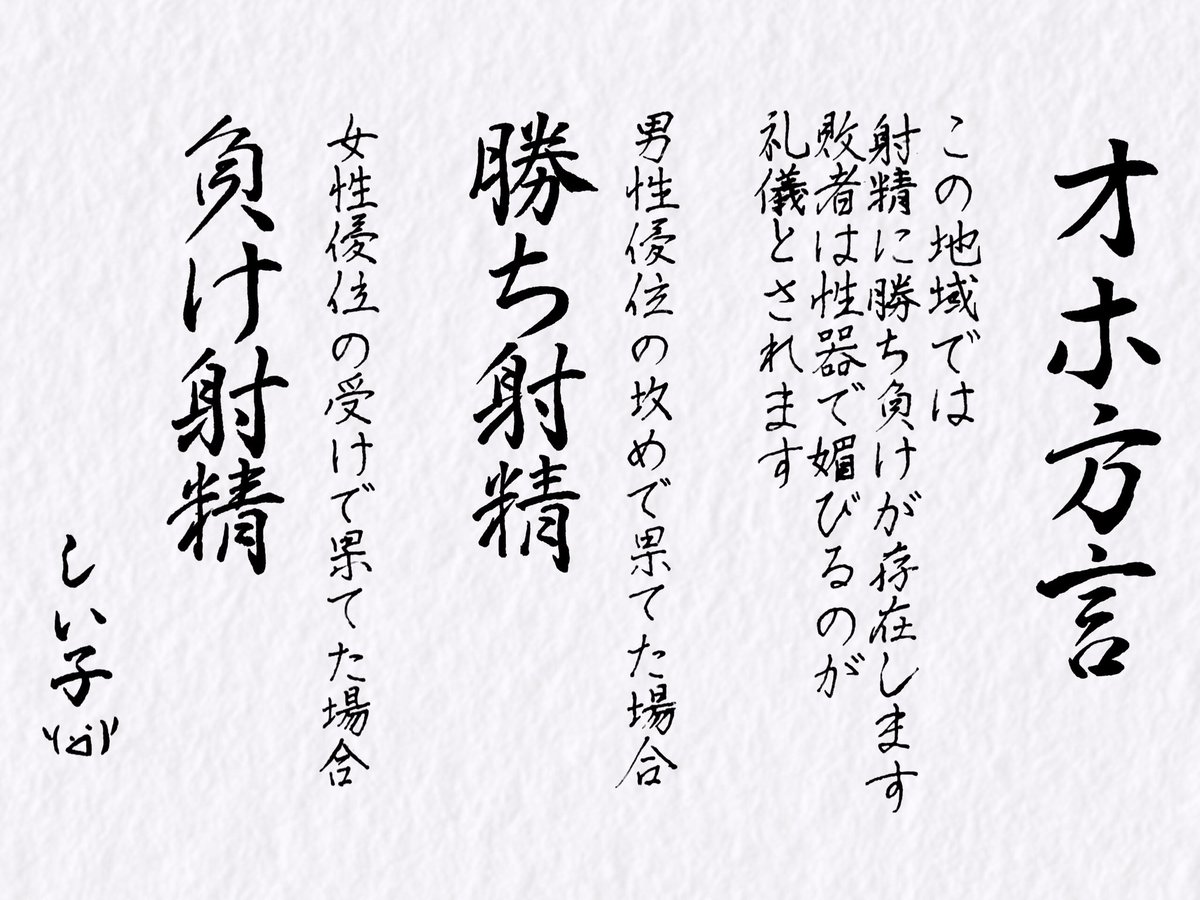 オホ方言
この地域では
射精に勝ち負けが存在します
敗者は性器で媚びるのが
礼儀とされます
男性優位の攻めで果てた場合
勝ち射精
女性優位の受けで果てた場合
負け射精
しい子